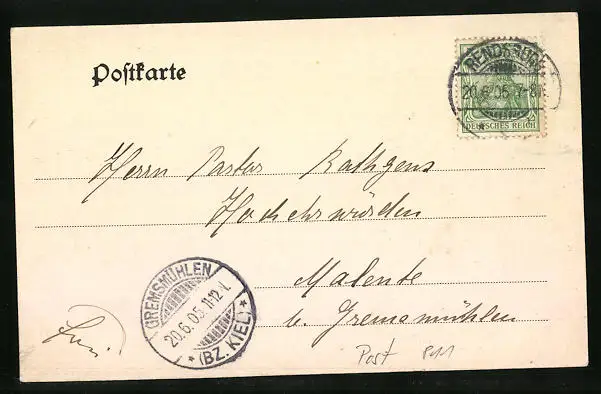 Postkarte
RENDSBURG
20.6.05. 7-8
DEUTSCHES REICH
Herrn Pastor Rathgens
Hochehrwürden
Malente
b. Gremsmühlen
GREMSMÜHLEN
20.6.05. 11-12 V.
* (BZ. KIEL) *
Post